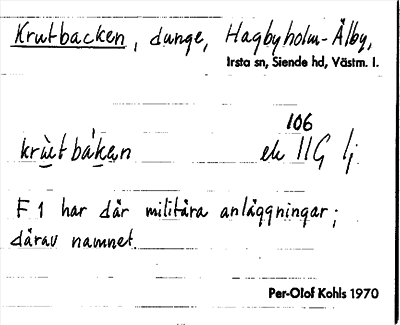 Krutbacken, dunge, Hagbyholm-Älby,
Irsta sn, Siende hd, Västm. l.
106
krùt bàken ek 11G lj
F 1 har där militära anläggningar;
därav namnet.
Per-Olof Kohls 1970